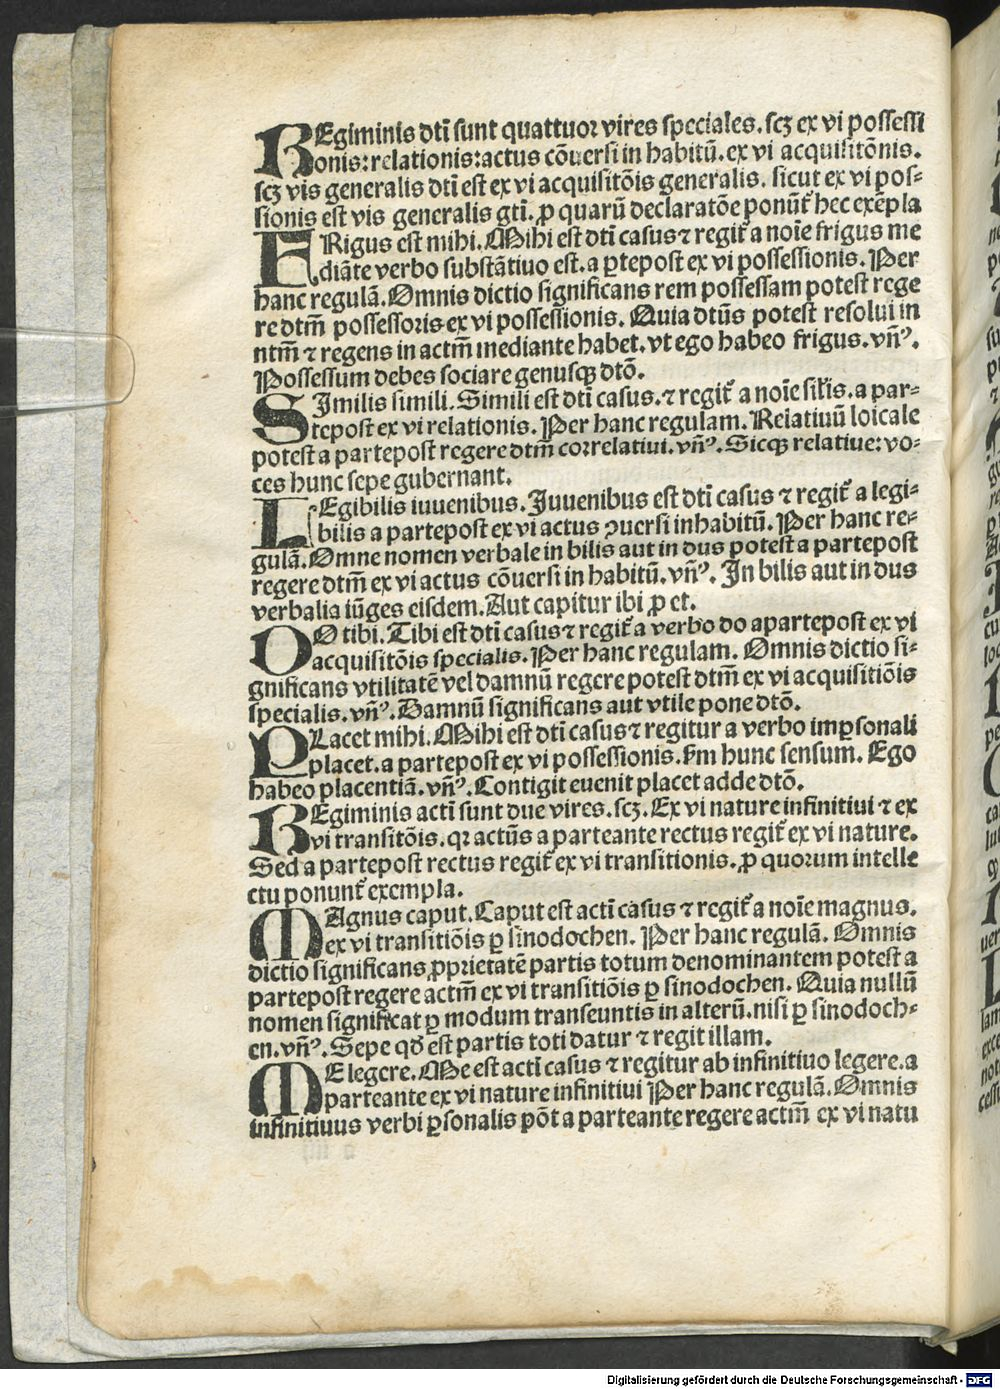 REgiminis dtī sunt quattuor vires speciales. scꝫ ex vi possessi
onis: relationis: actus cōuersi in habitū. ex vi acquisitōnis.
scꝫ vis generalis dtī est ex vi acquisitōis generalis. sicut ex vi pos⸗
sionis est vis generalis gtī. ꝓ quarū declaratōe ponūt᷑ hec exēpla
FRigus est mihi. Mihi est dtī casus ⁊ regit᷑ a noīe frigus me
diāte verbo substātiuo est. a ꝑtepost ex vi possessionis. Per
hanc regulā. Omnis dictio significans rem possessam potest rege
re dtm̄ possessoris ex vi possessionis. Quia dtūs potest resolui in
ntm̄ ⁊ regens in actm̄ mediante habet. vt ego habeo frigus. vn̄ꝰ.
Possessum debes sociare genusqꝫ dtō.
SImilis simili. Simili est dtī casus. ⁊ regit᷑ a noīe sil̄is. a par⸗
tepost ex vi relationis. Per hanc regulam. Relatiuū loicale
potest a partepost regere dtm̄ correlatiui. vn̄ꝰ. Sicqꝫ relatiue: vo⸗
ces hunc sepe gubernant.
LEgibilis iuuenibus. Iuuenibus est dtī casus ⁊ regit᷑ a legi⸗
bilis a partepost ex vi actus ꝯuersi inhabitū. Per hanc re⸗
gulā. Omne nomen verbale in bilis aut in dus potest a partepost
regere dtm̄ ex vi actus cōuersi in habitū. vn̄ꝰ. In bilis aut in dus
verbalia iūges eisdem. Aut capitur ibi ꝓ et.
DO tibi. Tibi est dtī casus ⁊ regit᷑ a verbo do apartepost ex vi
acquisitōis specialis. Per hanc regulam. Omnis dictio si⸗
gnificans vtilitatē vel damnū regere potest dtm̄ ex vi acquisitiōis
specialis. vn̄ꝰ. Damnū significans aut vtile pone dtō.
PLacet mihi. Mihi est dtī casus ⁊ regitur a verbo imꝑsonali
placet. a partepost ex vi possessionis. Fm hunc sensum. Ego
habeo placentiā. vn̄ꝰ. Contigit euenit placet adde dtō.
REgiminis actī sunt due vires. scꝫ. Ex vi nature infinitiui ⁊ ex
vi transitōis. qꝛ actūs a parteante rectus regit᷑ ex vi nature.
Sed a partepost rectus regit᷑ ex vi transitionis. ꝓ quorum intelle
ctu ponunt᷑ exempla.
MAgnus caput. Caput est actī casus ⁊ regit᷑ a noīe magnus.
ex vi transitiōis ꝑ sinodochen. Per hanc regulā. Omnis
dictio significans ꝓprietatē partis totum denominantem potest a
partepost regere actm̄ ex vi transitiōis ꝑ sinodochen. Quia nullū
nomen significat ꝑ modum transeuntis in alterū. nisi ꝑ sinodoch⸗
en. vn̄ꝰ. Sepe qđ est partis toti datur ⁊ regit illam.
ME legere. Me est actī casus ⁊ regitur ab infinitiuo legere. a
parteante ex vi nature infinitiui Per hanc regulā. Omnis
infinitiuus verbi ꝑsonalis pōt a parteante regere actm̄ ex vi natu
Digitalisierung gefördert durch die Deutsche Forschungsgemeinschaft - DFG